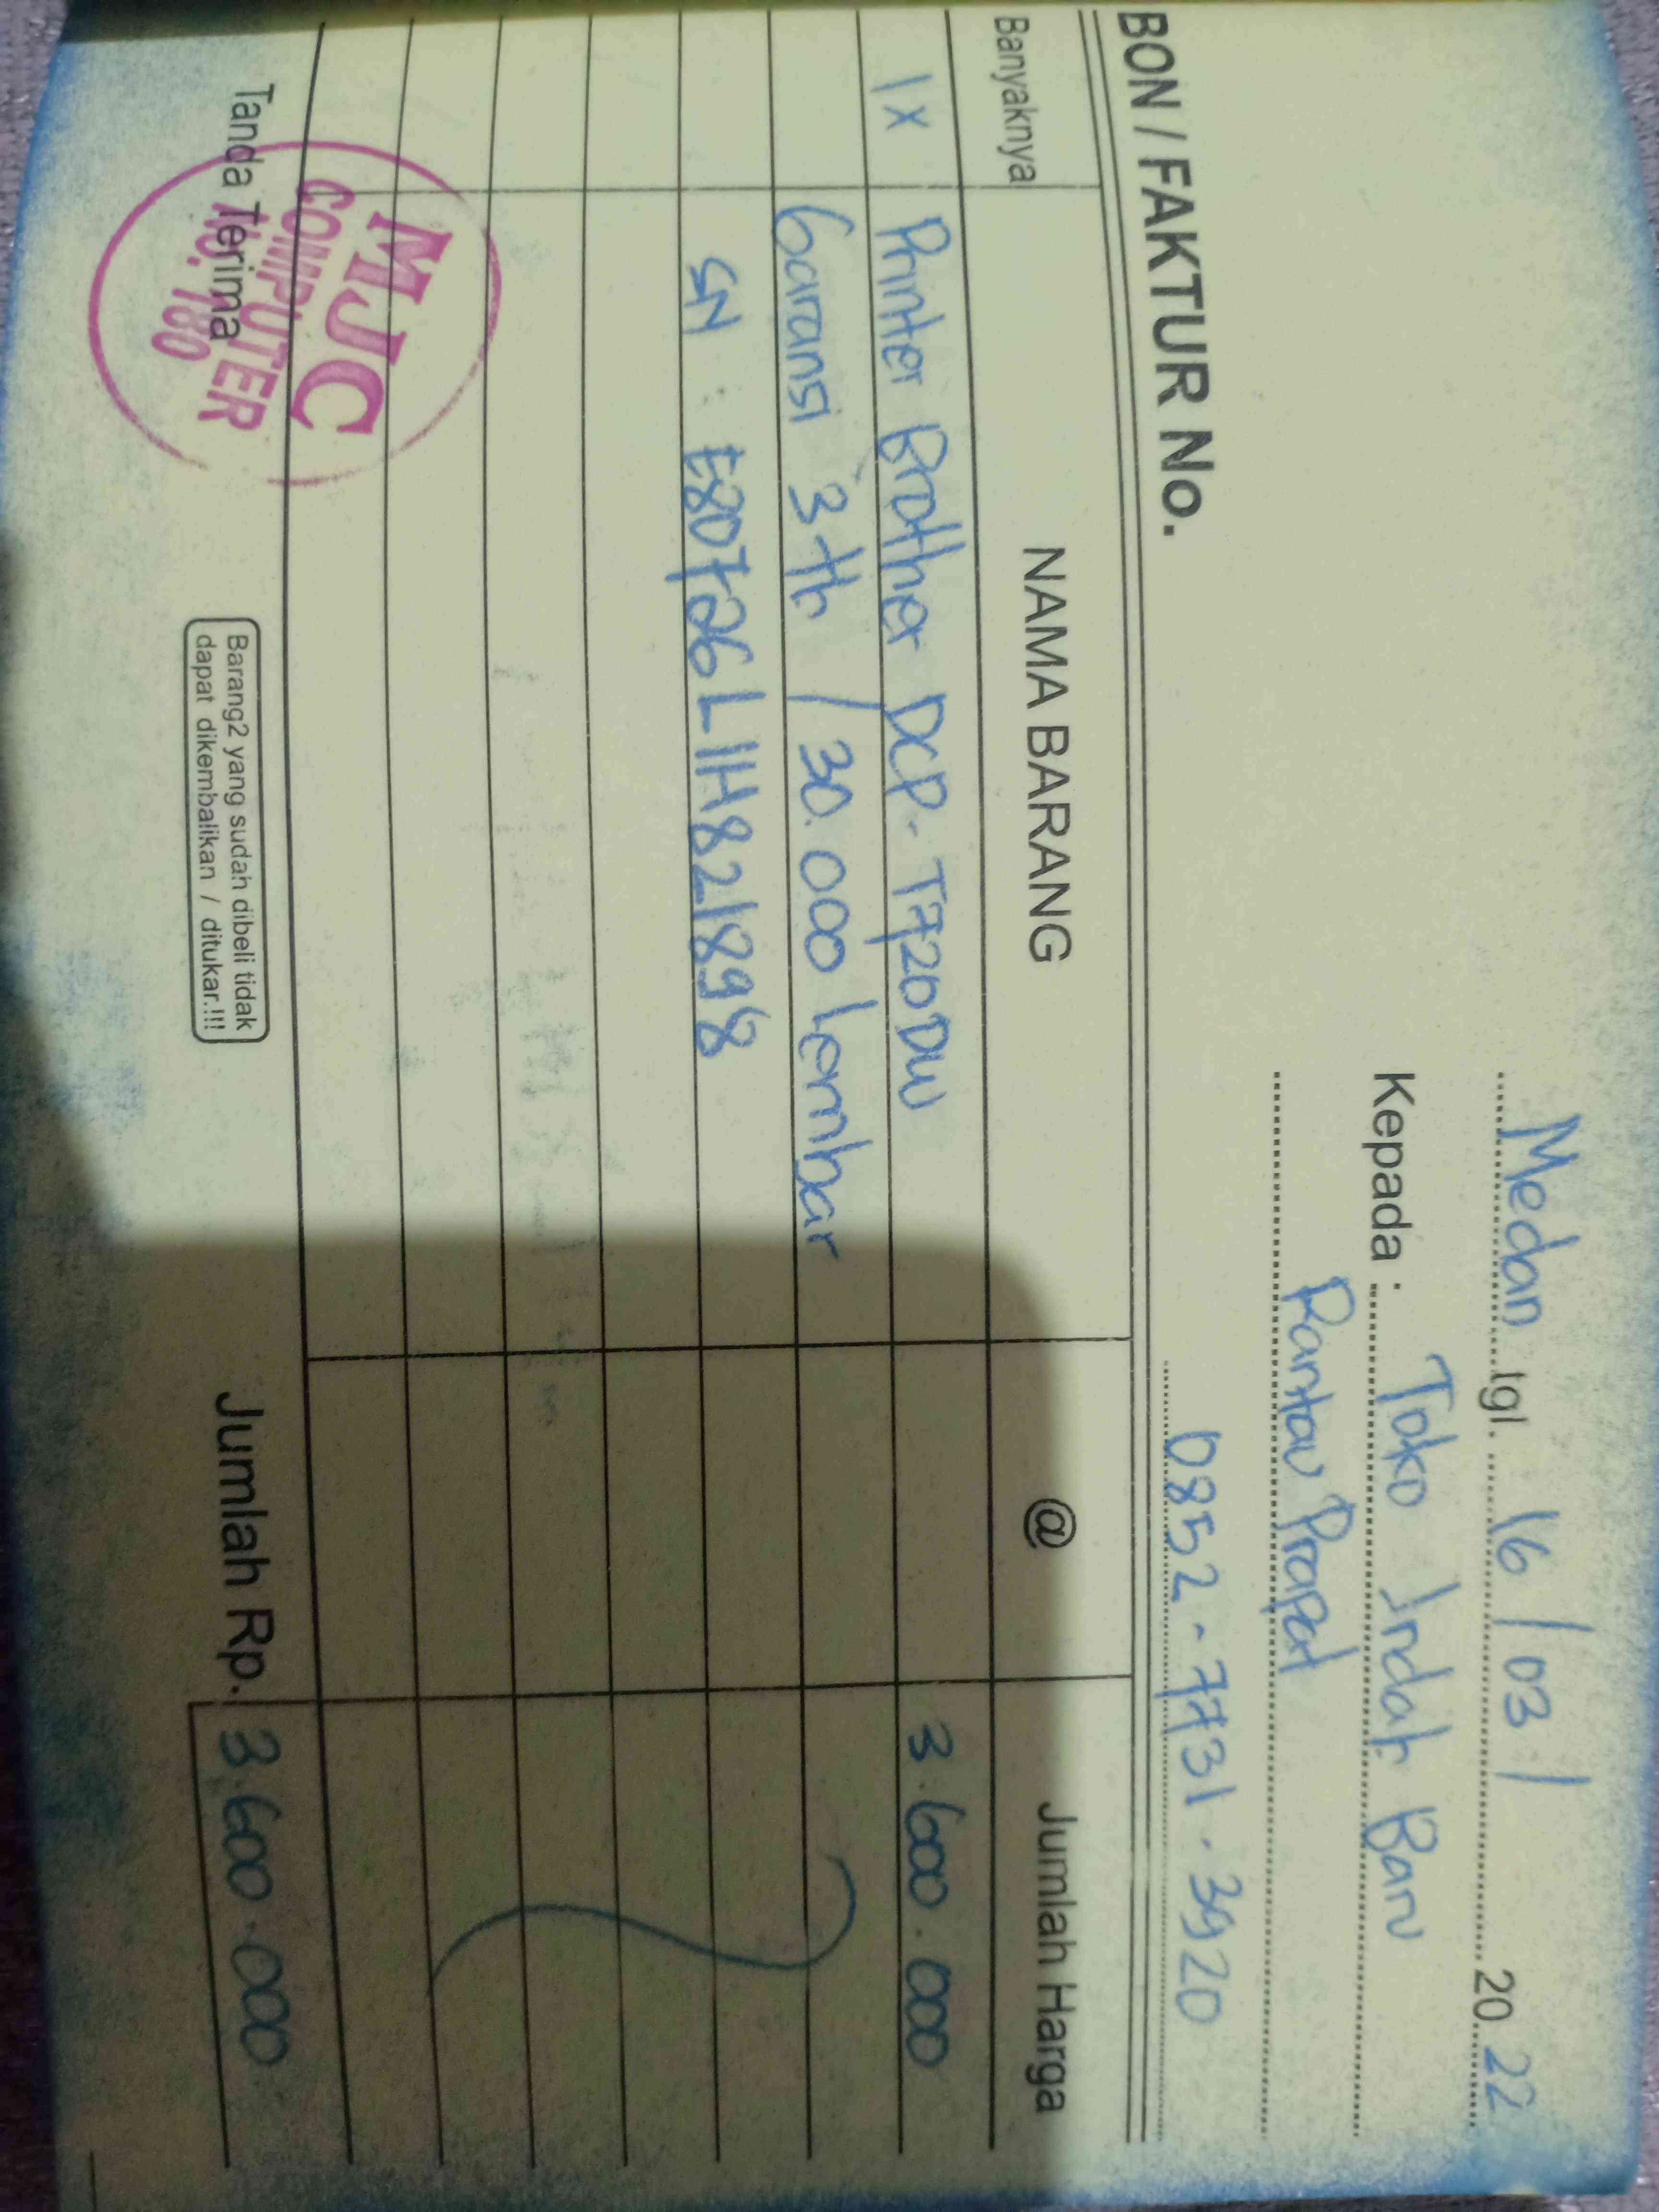 Medan tgl. 16 / 03 / 20 22
Kepada : Toko Indah Baru
Rantau Prapat
0852-7731-3920
BON / FAKTUR No.
Banyaknya NAMA BARANG @ Jumlah Harga
1x Printer Brother DCP-T720DW 3.600.000
Garansi 3 th / 30.000 lembar
SN : E80726L1H821898
Tanda Terima
MJC
COMPUTER
NO. 180
Barang2 yang sudah dibeli tidak
dapat dikembalikan / ditukar.!!!
Jumlah Rp. 3.600.000